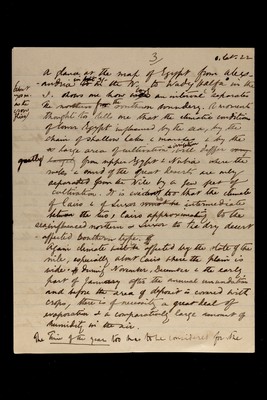 3/
a glance at the map of Egypt from Alex-
andria in the N. to Wady Halfa in the
S. shows me how an interval separates
the northern from the southern boundary. A moments
thought tells me that the climatic condition
of lower Egypt influenced by the sea, by the
chain of shallow lakes & marshes, & by the
large area of cultivation will differ
greatly from upper Egypt & Nubia where the
rocks & sand of the great deserts are only
separated from the Nile by a few feet of
cultivation. It is evident too that the climate
of Cairo & of Luxor must be intermediate
between the two, Cairo approximating to the
sea influenced northern & Luxor to the dry desert
affected Southern type.
Again climate will be affected by the state of the
nile, especially about Cairo where the plain is
wide. During November, December & the early
part of January after the annual inundation
and before the area of deposit is covered with
crops, there is of necessity a great deal of
evaporation & a comparatively large amount of
humidity in the air.
The Time of the year too has to be considered for the